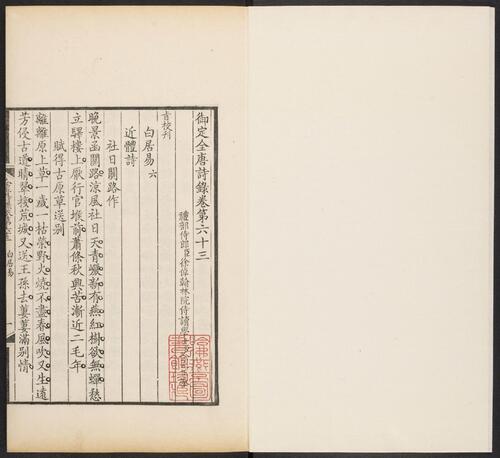 御定全唐詩錄卷第六十三
禮部侍郎臣徐倬翰林院侍讀學士
旨校刊
白居易 六
近體詩
社日關路作
晚景函關路涼風社日天青巖新有燕紅樹欲無蟬愁
立驛樓上厭行官堠前蕭條秋興苦漸近二毛年
賦得古原草送别
離離原上草一歲一枯榮野火燒不盡春風吹又生遠
芳侵古道晴翠接荒城又送王孫去萋萋滿别情
白居易
一